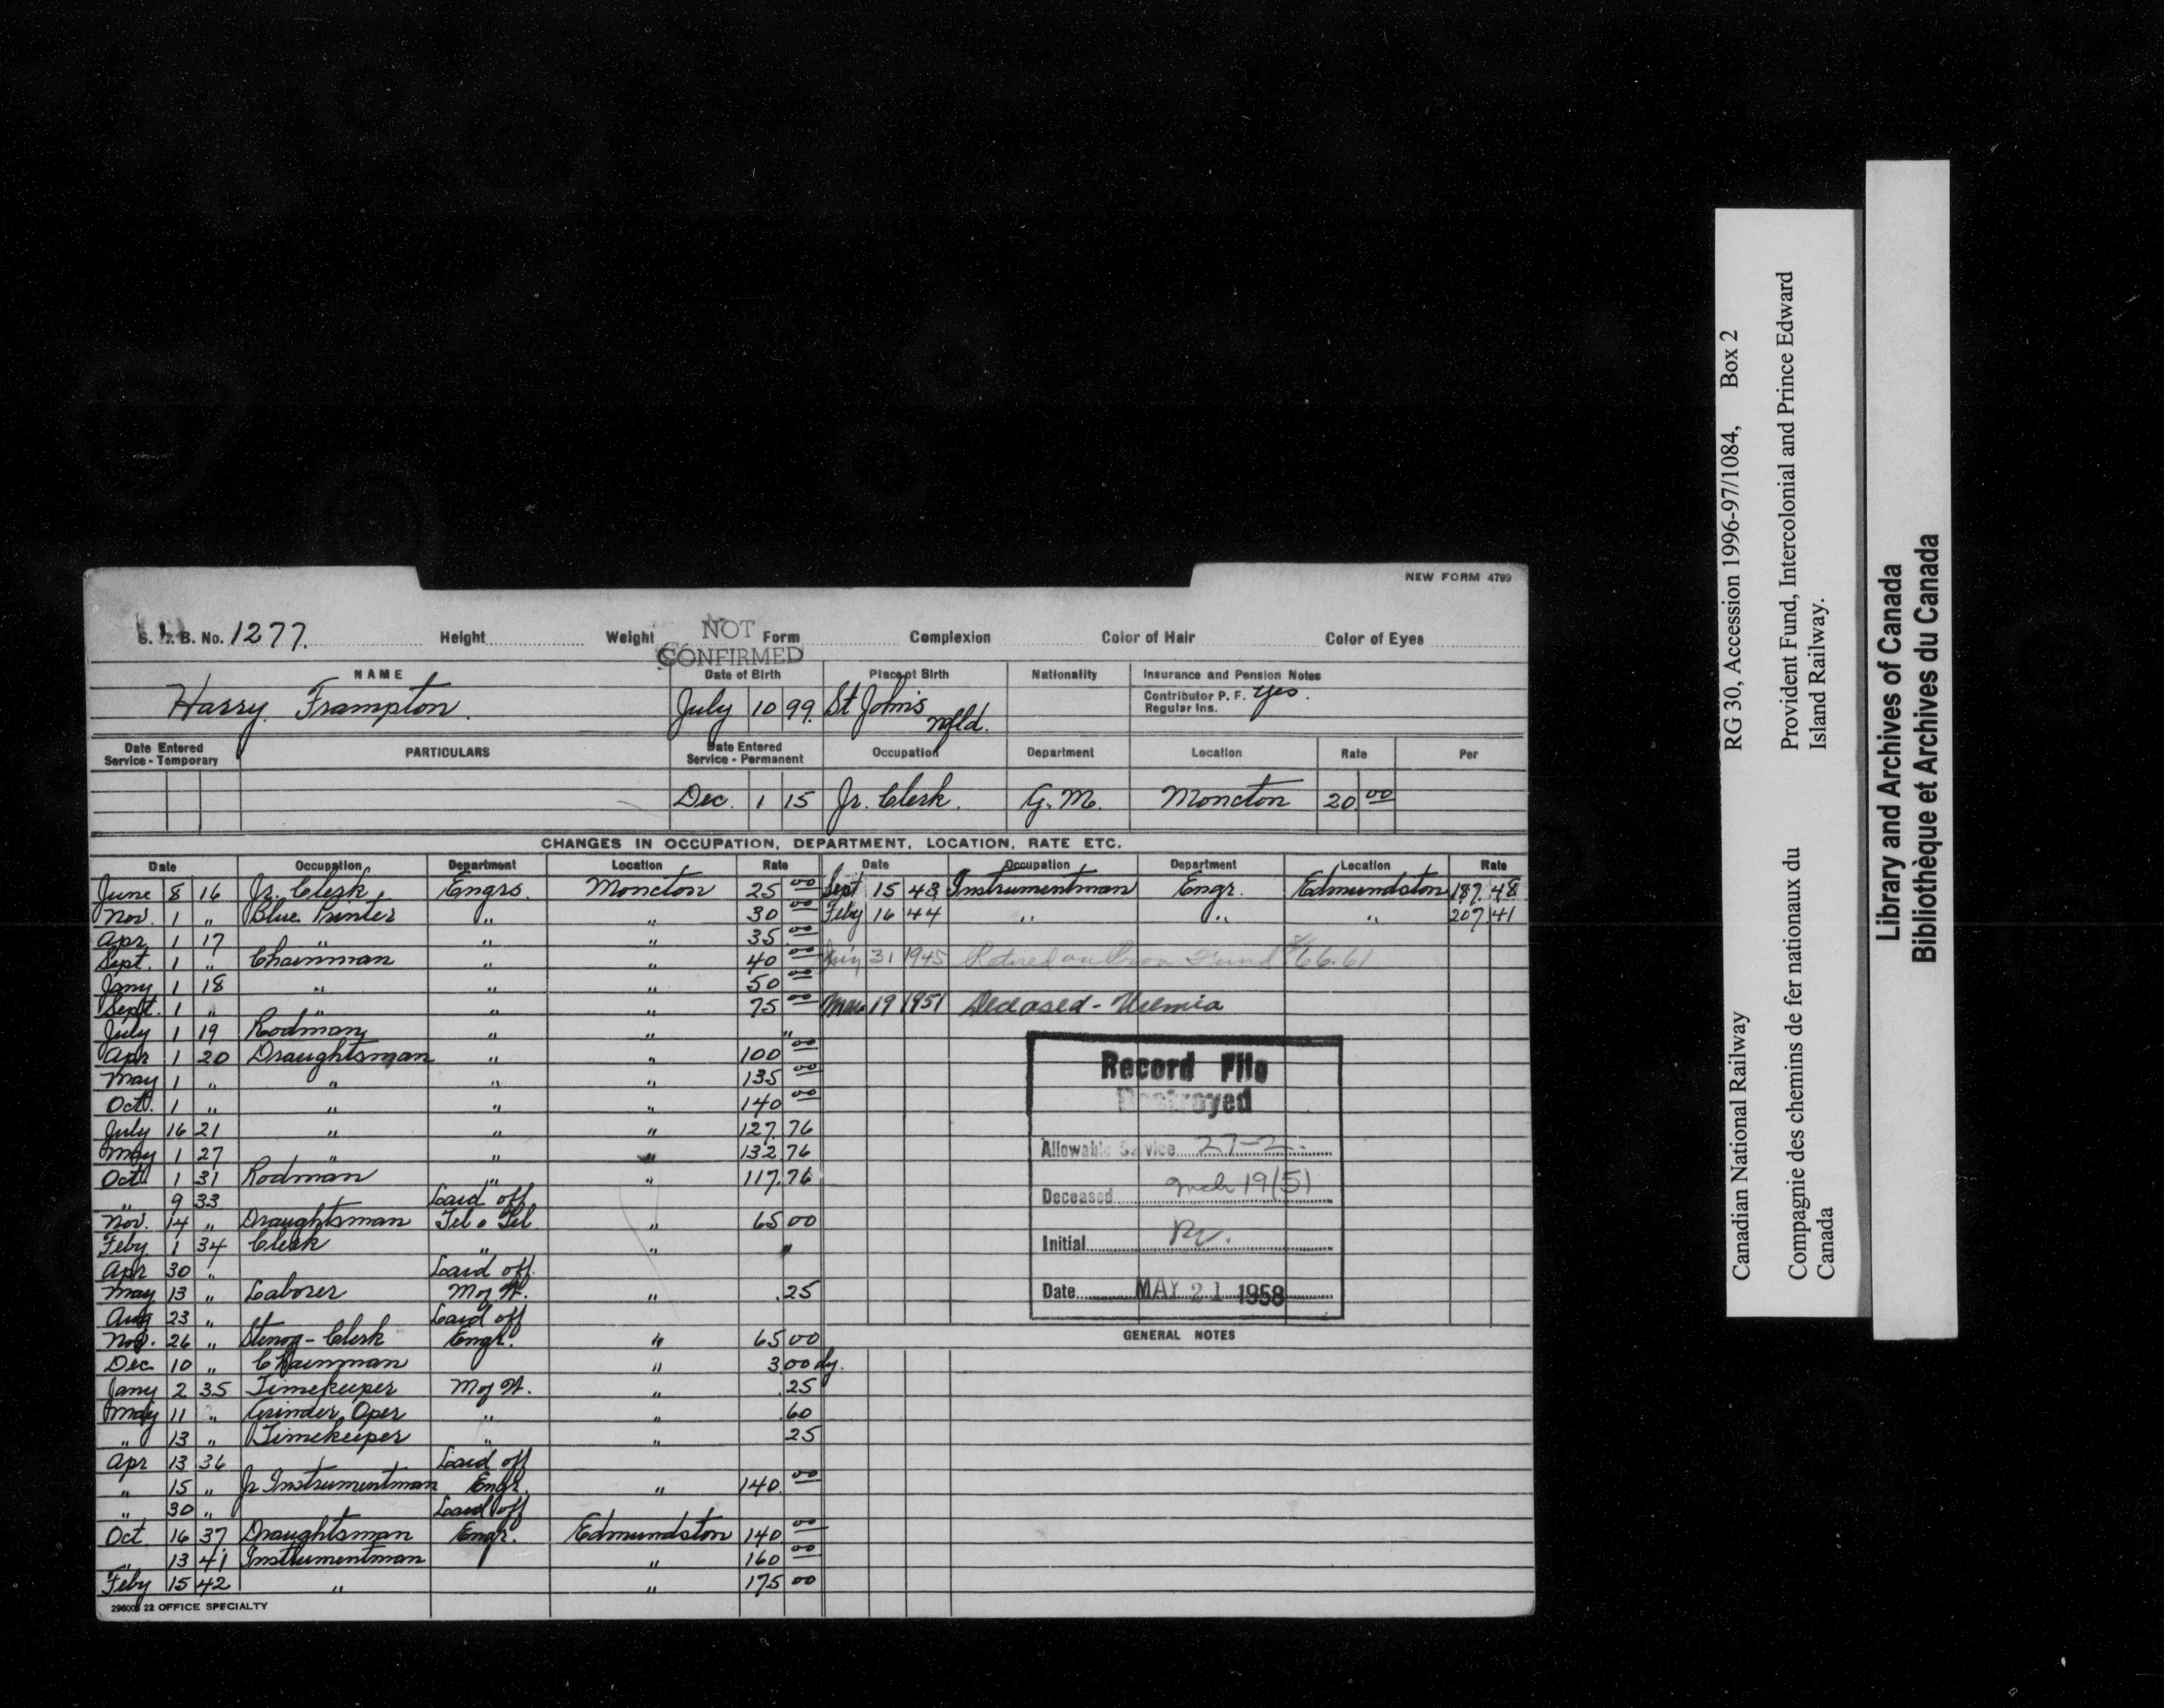 NEW FORM 4799
S. & B. No. 1277. Height Weight Form Complexion Color of Hair Color of Eyes
NOT CONFIRMED
NAME Date of Birth Place of Birth Nationality Insurance and Pension Notes
Harry Frampton. July 10 99. St John's Nfld. Contributor P. F. Yes.
Regular Ins.
Date Entered Service - Temporary PARTICULARS Date Entered Service - Permanent Occupation Department Location Rate Per
Dec. 1 15 Jr. Clerk. G. M. Moncton 20.00
CHANGES IN OCCUPATION, DEPARTMENT, LOCATION, RATE ETC.
Date Occupation Department Location Rate
June 8 16 Jr. Clerk Engrs. Moncton 25 00
Nov. 1 " Blue Printer " " 30 00
Apr 1 17 " " " 35 00
Sept. 1 " Chainman " " 40 00
Jany 1 18 " " " 50 00
Sept. 1 " " " " 75 00
July 1 19 Rodman " " "
Apr 1 20 Draughtsman " " 100 00
May 1 " " " " 135 00
Oct. 1 " " " " 140 00
July 16 21 " " " 127.76
May 1 27 " " " 132.76
Oct 1 31 Rodman " " 117.76
" 9 33 Laid off
Nov. 14 " Draughtsman Tel & Tel " 65 00
Feby 1 34 Clerk " " "
Apr 30 " Laid off.
May 13 " Laborer M of W. " .25
Aug 23 " Laid off
Nov. 26 " Stenog - Clerk Engr. " 65 00
Dec 10 " Chainman " 3.00 dy.
Jany 2 35 Timekeeper M of W. " .25
May 11 " Grinder Oper " " .60
" 13 " Timekeeper " " .25
Apr 13 36 Laid off
" 15 " Jr Instrumentman Engr. " 140.00
" 30 " Laid off
Oct 16 37 Draughtsman Engr. Edmundston 140 00
" 13 41 Instrumentman " 160 00
Feby 15 42 " " 175 00
296008 22 OFFICE SPECIALTY
Date Occupation Department Location Rate
Sept 15 43 Instrumentman Engr. Edmundston 187.48
Feby 16 44 " " " 207.41
31 1945 Retired on Prov Fund $66.61
Mar 19 1951 Deceased - Uremia
Record File
Destroyed
Allowable Service 27-2-
Deceased Mch 19/51
Initial
Date MAY 21 1958
GENERAL NOTES
RG 30, Accession 1996-97/1084, Box 2
Canadian National Railway
Provident Fund, Intercolonial and Prince Edward
Island Railway.
Compagnie des chemins de fer nationaux du
Canada
Library and Archives of Canada
Bibliothèque et Archives du Canada